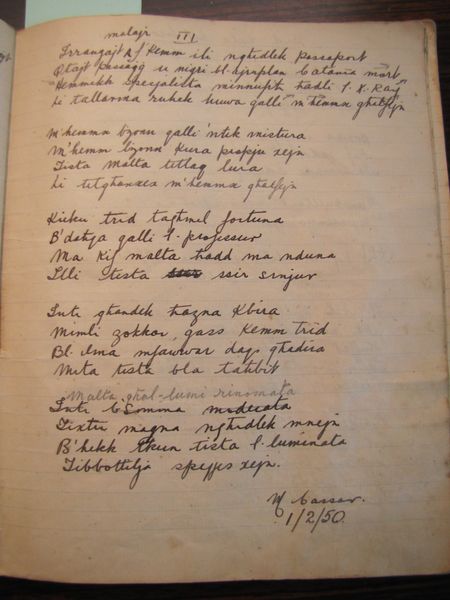 malajr
III
Irrangajt kemm ili nghidlek passaport
Qtajt passagg u nigri bl'ajruplan Catania mort
Hemmekk specjalista minnupih hadli l. X. Ray
li tallarma ruhek huwa galli m'hemmx ghalfejn
M'hemmx bzonn galli 'ntik mistura
M'hemm bzonn kura propju xejn
Tista Malta titlaq lura
li titghanxex m'hemmx ghalfejn
Kieku trid taghmel fortuna
B'dahqa galli l. professur
Ma kif malta hadd ma nduna
Illi tista ssir sinjur
Inti ghandek hazna kbira
Mimli zokkor, qass kemm trid
Bl. ilma mfawwar daqs ghadira
Mita tista bla tahbit
Malta ghal-lumi rinomata
Inti b'Somma moderata
Tixtri magna nghidlek mnejn
B'hekk tkun tista l. luminata
Tibbottilja spejjes xejn.
Cassar.
1/2/50